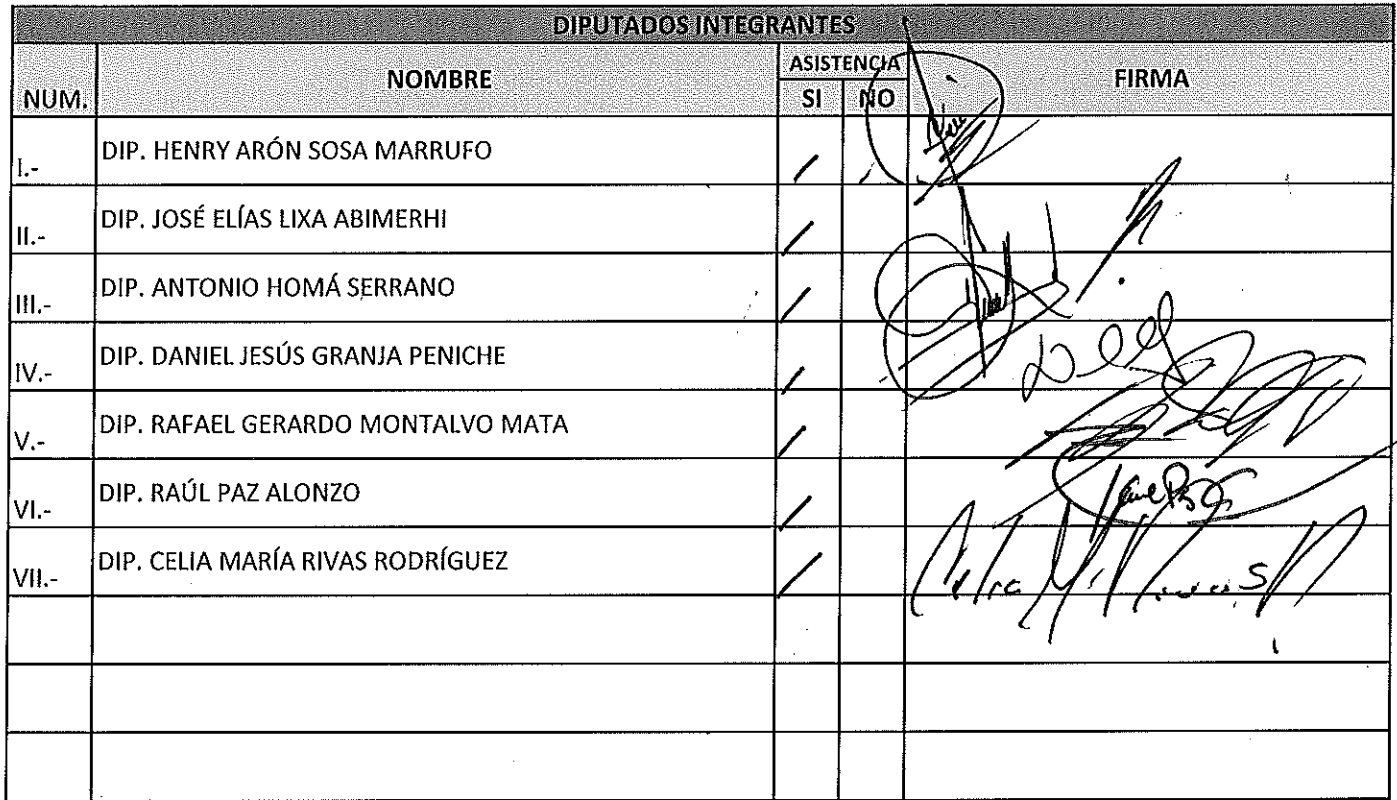 DIPUTADOS INTEGRANTES
NUM. NOMBRE ASISTENCIA FIRMA
SI NO
I.- DIP. HENRY ARÓN SOSA MARRUFO /
II.- DIP. JOSÉ ELÍAS LIXA ABIMERHI /
III.- DIP. ANTONIO HOMÁ SERRANO /
IV.- DIP. DANIEL JESÚS GRANJA PENICHE /
V.- DIP. RAFAEL GERARDO MONTALVO MATA /
VI.- DIP. RAÚL PAZ ALONZO /
VII.- DIP. CELIA MARÍA RIVAS RODRÍGUEZ /